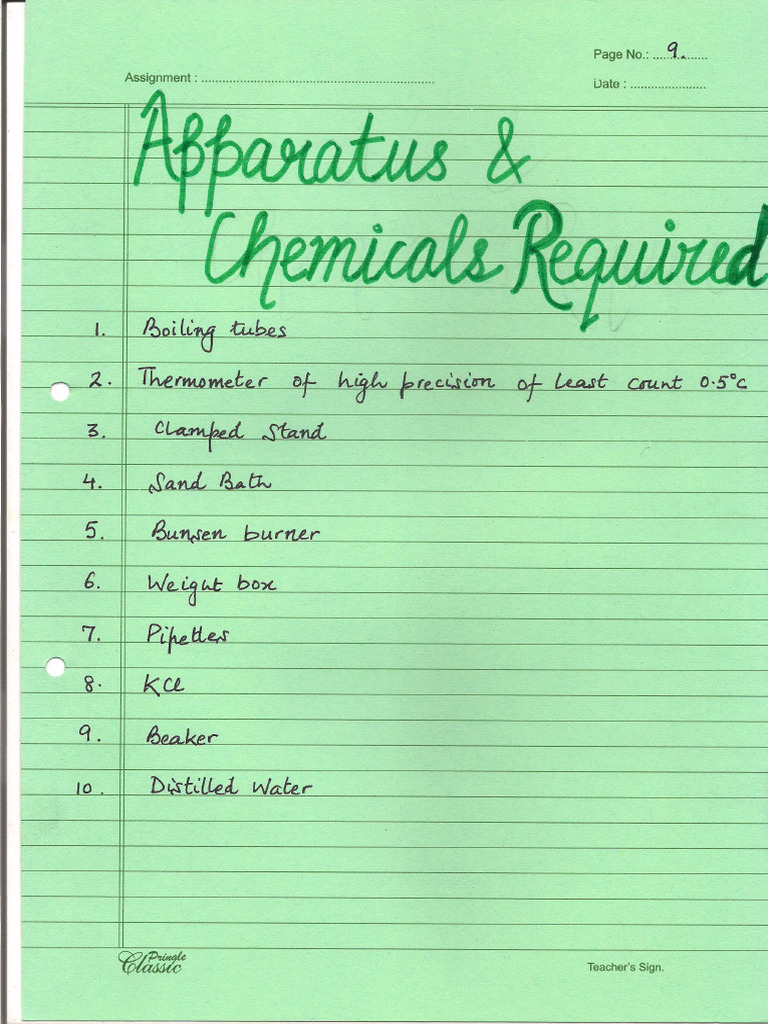 Page No.: ...9...
Assignment : ..........
Date : ..........
Apparatus &
Chemicals Required
1. Boiling tubes
2. Thermometer of high precision of least count 0.5°C
3. Clamped Stand
4. Sand Bath
5. Bunsen burner
6. Weight box
7. Pipettes
8. KCl
9. Beaker
10. Distilled Water
Pringle
Classic
Teacher's Sign.